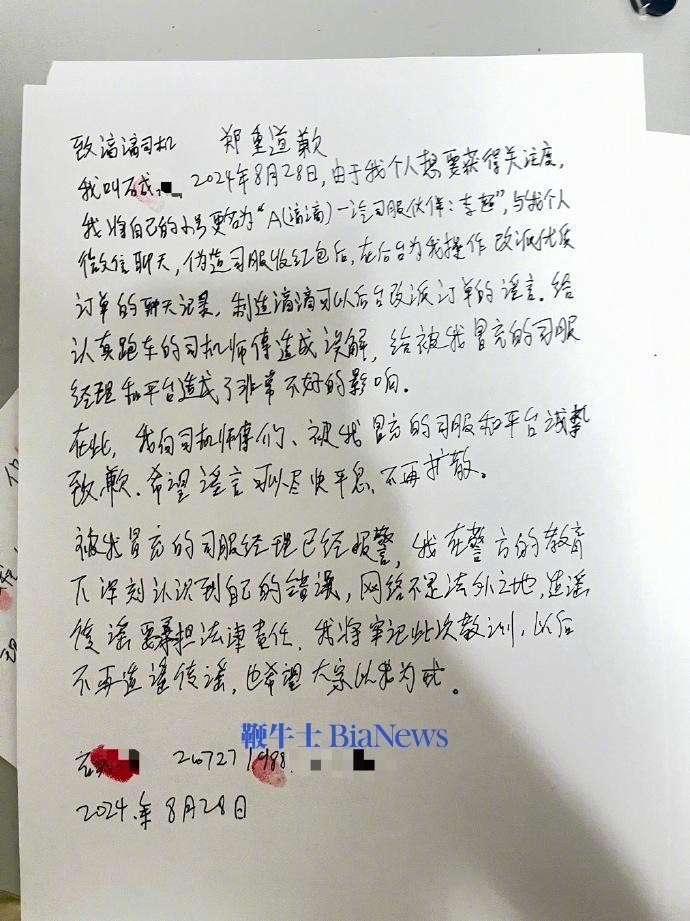 致滴滴司机 郑重道歉
我叫 2024年8月28日,由于我个人想要获得关注度,
我将自己的小号更名为“A(滴滴)一汽司服伙伴:李超”,与我个人
微信聊天,伪造司服收红包后,在后台为我操作改派优质
订单的聊天记录,制造滴滴可以后台改派订单的谣言.给
认真跑车的司机师傅造成误解,给被我冒充的司服
经理和平台造成了非常不好的影响.
在此,我向司机师傅们、被我冒充的司服和平台诚挚
致歉.希望谣言可以尽快平息、不再扩散。
被我冒充的司服经理已经报警,我在警方的教育
下深刻认识到自己的错误,网络不是法外之地,造谣
传谣要承担法律责任.我将牢记此次教训,以后
不再造谣传谣,也希望大家以我为戒。
鞭牛士 BiaNews
1988
2024年8月28日